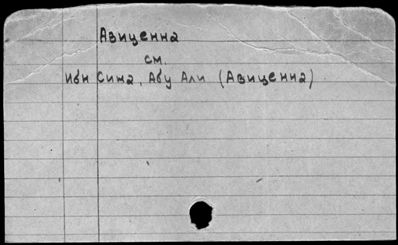 Авиценна
см.
Ибн Сина, Абу Али (Авиценна)